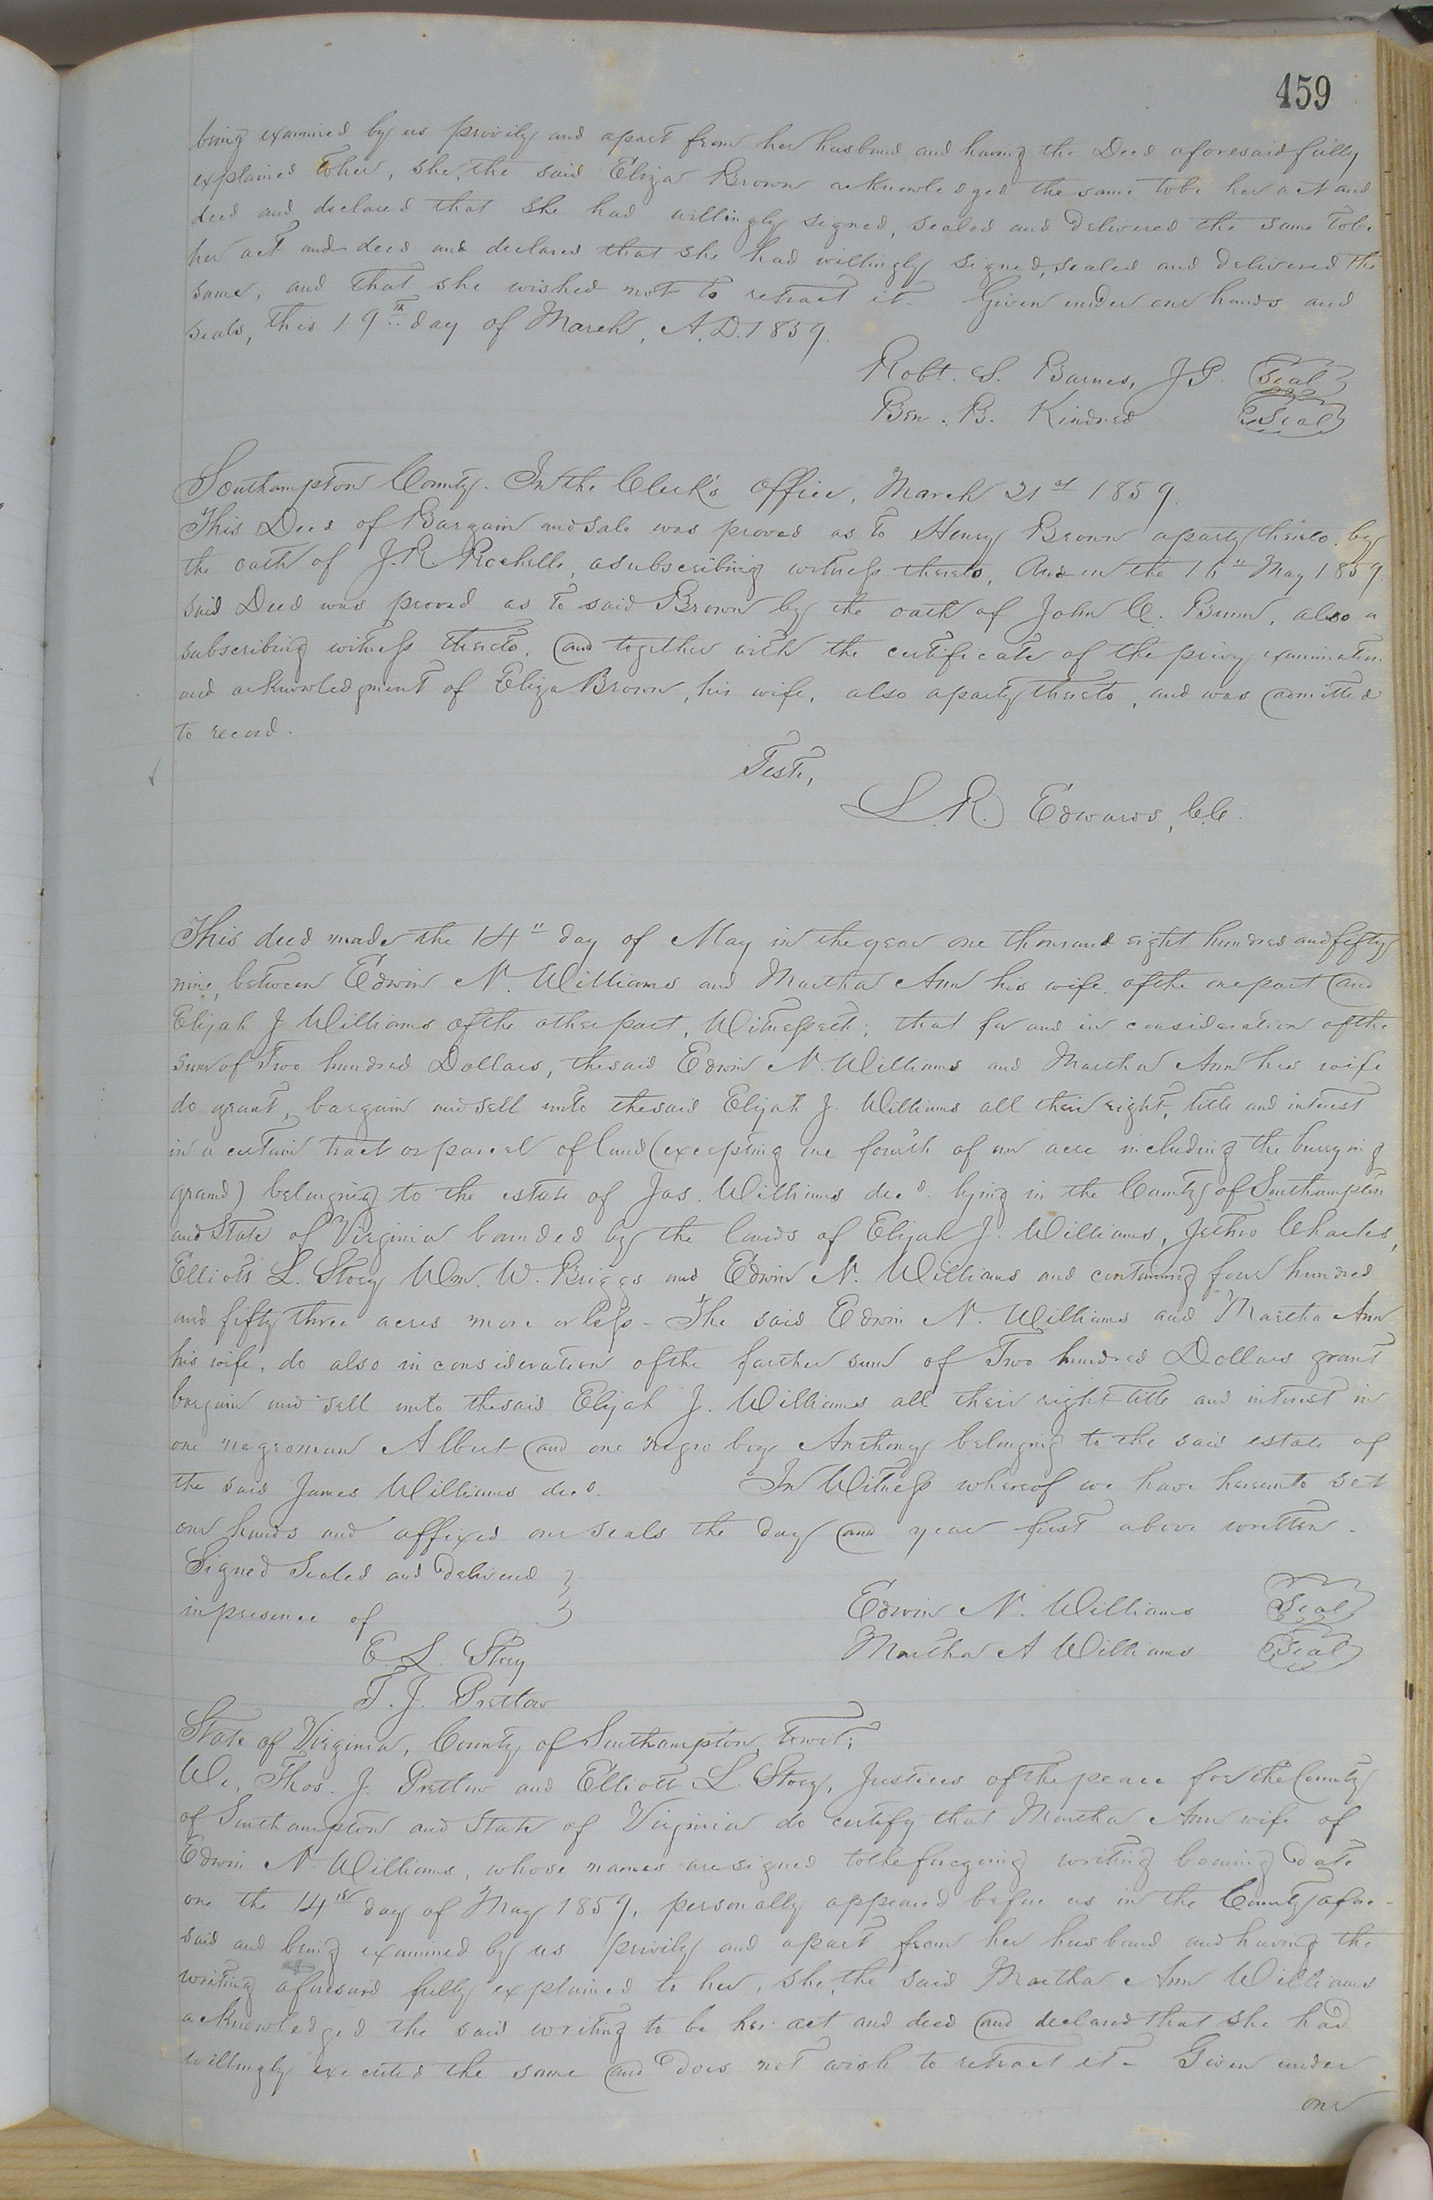 459
being examined by us privily and apart from her husband and having the Deed aforesaid fully
explained to her, she, the said Eliza Brown acknowledged the same to be her act and
deed and declared that she had willingly signed, sealed and delivered the same to be
her act and deed and declared that she had willingly signed, sealed and delivered the
same, and that she wished not to retract it - Given under our hands and
seals, this 19th day of March, A.D. 1859.
Robt. S. Barnes, J.P. Seal
Ben. B. Kindred Seal
Southampton County. In the Clerk's office, March 21st 1859.
This Deed of Bargain and sale was proved as to Henry Brown a party thereto by
the oath of J. R. Rochelle, a subscribing witness thereto, And on the 16th May 1859
said Deed was proved as to said Brown by the oath of John C. Bunn, also a
subscribing witness thereto, and together with the certificate of the privy examination
and acknowledgment of Eliza Brown, his wife, also a party thereto, and was admitted
to record.
Teste,
L. R. Edwards, C.C.
This deed made the 14th day of May in the year one thousand eight hundred and fifty
nine, between Edwin N. Williams and Martha Ann his wife of the one part and
Elijah J. Williams of the other part, Witnesseth; that for and in consideration of the
sum of Two hundred Dollars, the said Edwin N. Williams and Martha Ann his wife
do grant, bargain and sell unto the said Elijah J. Williams all their right, title and interest
in a certain tract or parcel of land (excepting one fourth of an acre including the burying
ground) belonging to the estate of Jas. Williams decd. lying in the County of Southampton
and State of Virginia bounded by the lands of Elijah J. Williams, Jethro Charles,
Elliott L. Story Wm. W. Briggs and Edwin N. Williams and containing four hundred
and fifty three acres more or less - The said Edwin N. Williams and Martha Ann
his wife, do also in consideration of the farther sum of Two hundred Dollars grant
bargain and sell unto the said Elijah J. Williams all their right title and interest in
one negro man Albert and one negro boy Anthony belonging to the said estate of
the said James Williams decd. In Witness whereof we have hereunto set
our hands and affixed our seals the day and year first above written.
Signed Sealed and Delivered
in presence of
Edwin N. Williams Seal
Martha A Williams Seal
E. L. Story
T. J. Pretlow
State of Virginia, County of Southampton, towit;
We, Thos. J. Pretlow and Elliott L. Story, Justices of the peace for the County
of Southampton and State of Virginia do certify that Martha Ann wife of
Edwin N. Williams, whose names are signed to the foregoing writing bearing date
one the 14th day of May 1859, personally appeared before us in the County afore-
said and being examined by us privily and apart from her husband and having the
writing aforesaid fully explained to her, she, the said Martha Ann Williams
acknowledged the said writing to be her act and deed and declared that she had
willingly executed the same and does not wish to retract it - Given under
our